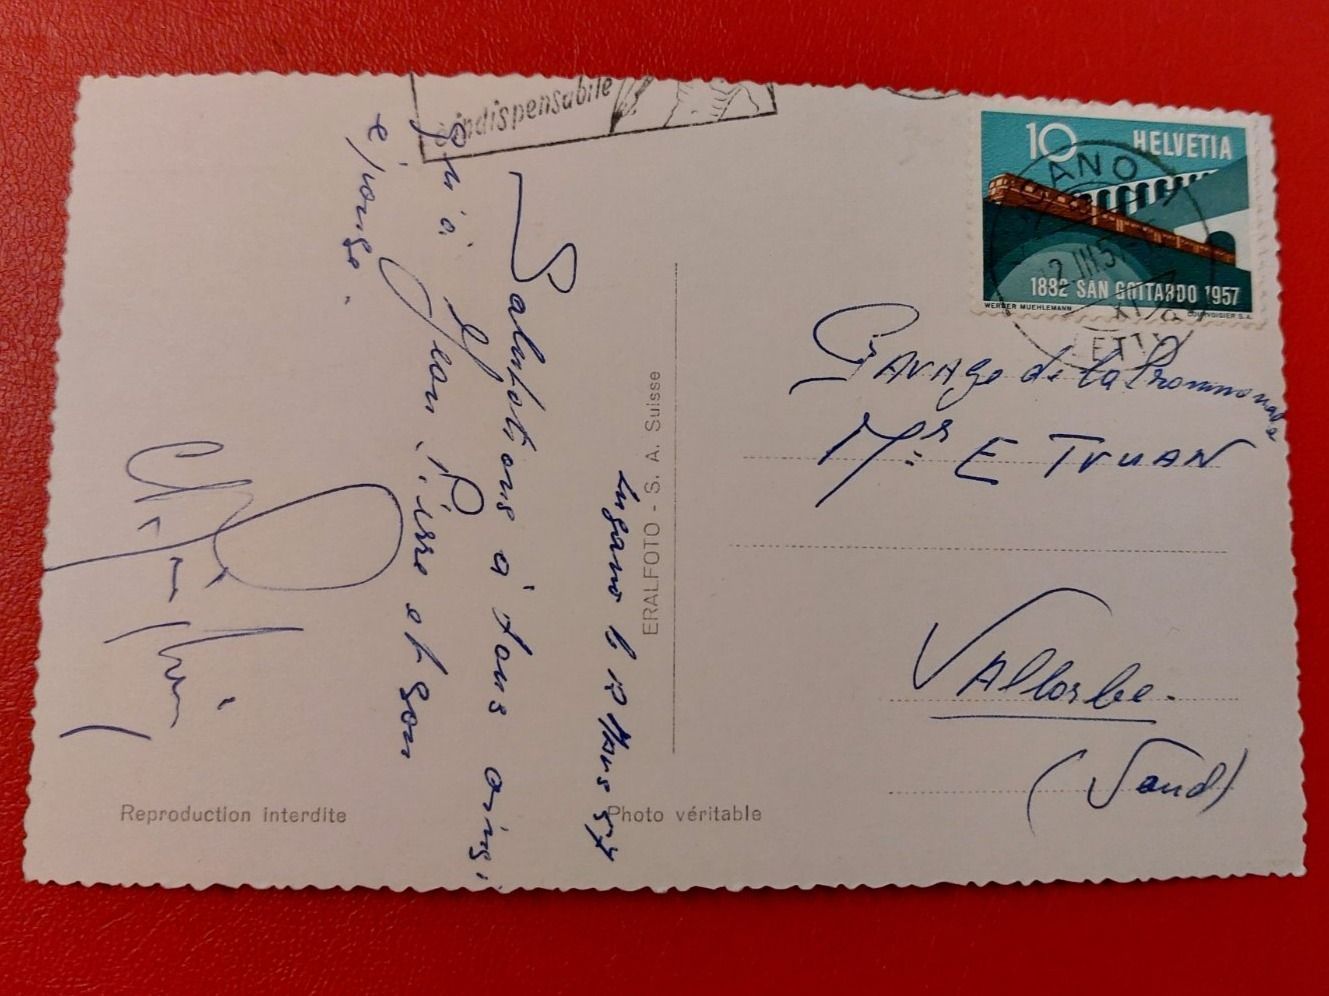 è indispensabile
10 HELVETIA
1882 SAN GOTTARDO 1957
WERNER MUEHLEMANN COURVOISIER S.A.
Lugano le 12 Mars 57
Salutations à tous ainsi
qu'à Jean Pierre et son
épouse.
ERALFOTO - S. A. Suisse
Garage de la Prommenade
Mr. E TRUAN
Vallorbe.
(Vaud)
Reproduction interdite
Photo véritable